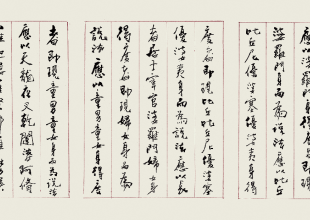 婆羅門身而為說法應以比丘
比丘尼優婆塞優婆夷身得
度者即現比丘比丘尼優婆塞
優婆夷身而為說法應以長
者居士宰官婆羅門婦女身
得度者即現婦女身而為
說法應以童男童女身得度
者即現童男童女身而為說法
應以天龍夜叉乾闥婆阿脩